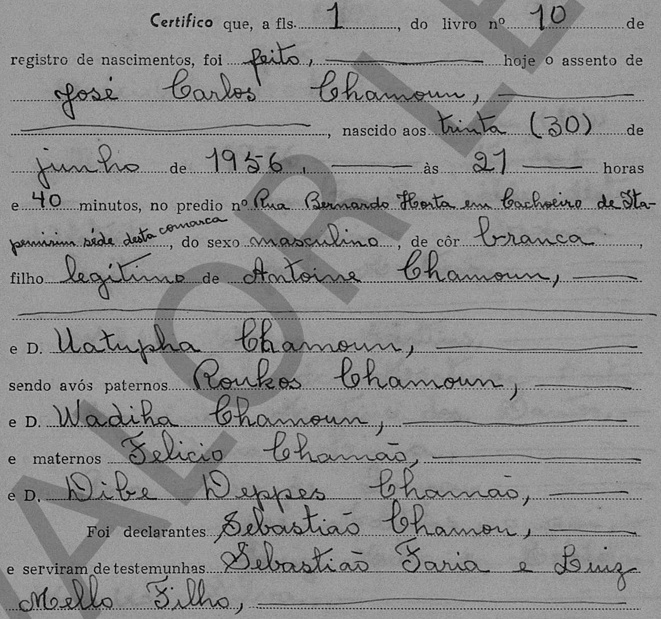 Certifico que, a fls. 1, do livro nº 10 de
registro de nascimentos, foi feito, hoje o assento de
José Carlos Chamoun,
, nascido aos trinta (30) de
junho de 1956, às 21 horas
e 40 minutos, no predio nº Rua Bernardo Horta em Cachoeiro de Ita-
pemirim séde desta comarca, do sexo masculino, de côr branca,
filho legítimo de Antoine Chamoun,
e D. Uatupha Chamoun,
sendo avós paternos Roukos Chamoun,
e D. Wadiha Chamoun,
e maternos Felicio Chamão,
e D. Dibe Deppes Chamão,
Foi declarantes Sebastião Chamon,
e serviram de testemunhas Sebastião Faria e Luiz
Mello Filho,
VALOR LE